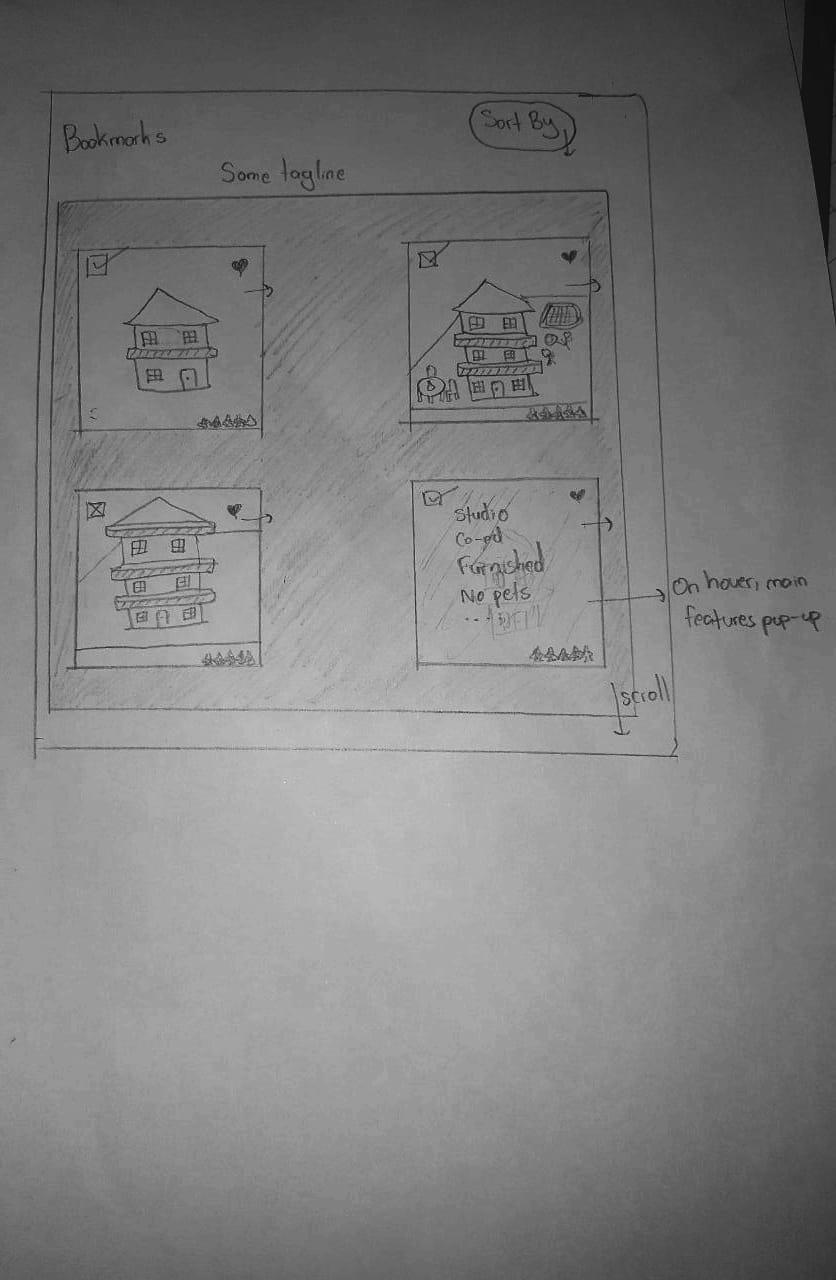 Bookmarks
Sort By
Some tagline
Studio
Co-ed
Furnished
No pets
...
On hover, main
features pop-up
scroll